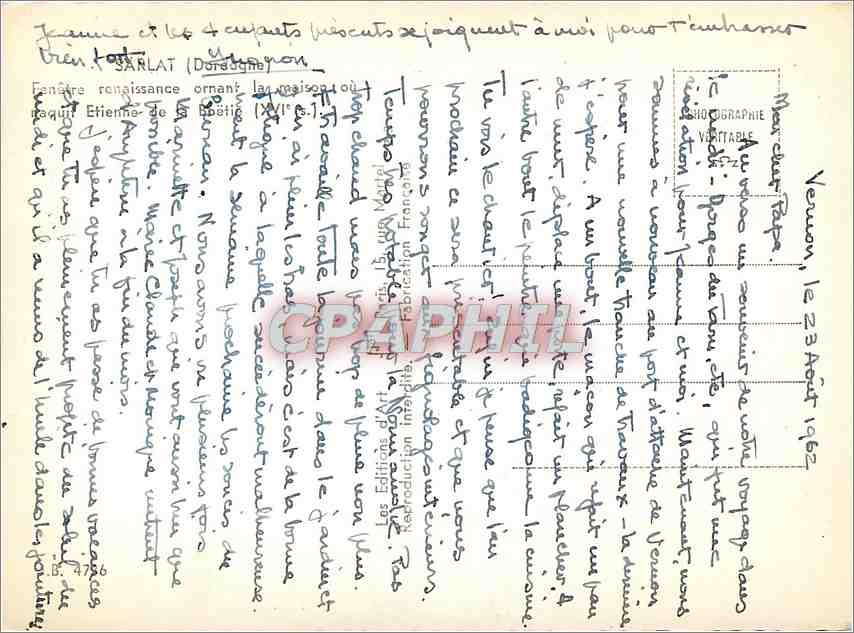 Vernon, le 23 Août 1962
Mon cher Papa.
Au verso un souvenir de notre voyage dans
le Midi - Gorges du Tarn, etc, qui fut une
révélation pour Jeanne et moi. Maintenant, nous
sommes à nouveau au port d'attache de Vernon
pour une nouvelle tranche de travaux - la dernière
j'espère. A un bout, le maçon qui refait un pan
de mur, déplace une porte, refait un plancher, à
l'autre bout le peintre qui badigeonne la cuisine.
Tu vois le chantier! Enfin je pense que l'an
prochain ce sera présentable et que nous
pourrons songer aux fignolages intérieurs.
Temps très potable en Normandie. Pas
trop chaud mais pas trop de pluie non plus.
Je travaille toute la journée dans le jardin et
j'en ai plein les bras mais c'est de la bonne
fatigue à laquelle succèderont malheureuse-
ment la semaine prochaine les soucis du
bureau. Nous avons vu plusieurs fois
Mariette et Joseph qui vont aussi bien que
possible. Marie Claude et Monique rentrent
d'Angleterre à la fin du mois.
J'espère que tu as passé de bonnes vacances
et que tu as pleinement profité du soleil du
midi et qu'il a remis de l'huile dans les jointures.
Jeanne et les 4 enfants présents se joignent à moi pour t'embrasser
bien fort.
SARLAT (Dordogne)
Fenêtre renaissance ornant la maison où
naquit Etienne de la Boétie (XVIe s.)
PHOTOGRAPHIE
VÉRITABLE
Les Editions d'Art
Paris, 15, rue Martel
Reproduction interdite. Fabrication Française
B. 4756
CPAPHIL